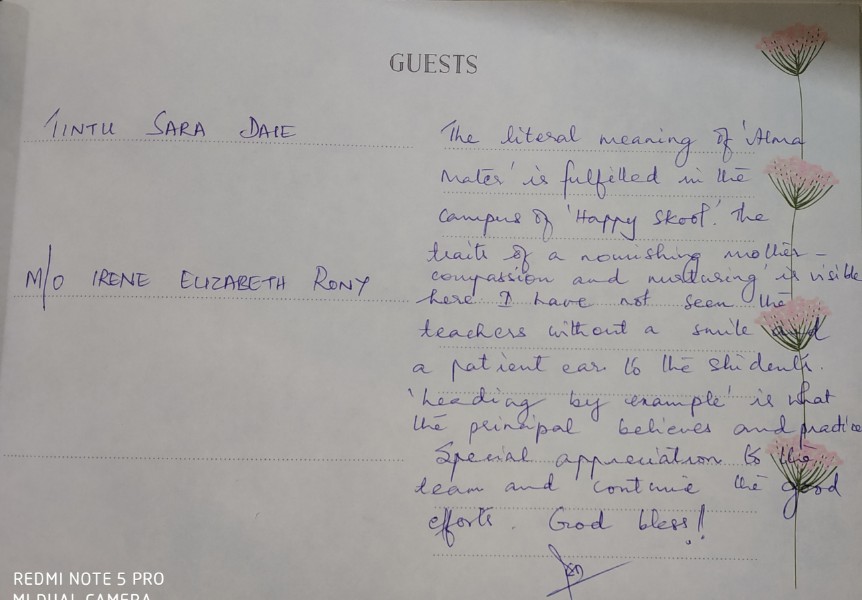 GUESTS
TINTU SARA DALE
M/O IRENE ELIZABETH RONY
The literal meaning of 'Alma
Mater' is fulfilled in the
campus of 'Happy Skool'. The
traits of a nourishing mother -
compassion and nurturing is visible
here I have not seen the
teachers without a smile and
a patient ear to the students.
'Leading by example' is what
the principal believes and practice
Special appreciation to the
team and continue the good
efforts. God bless!!
REDMI NOTE 5 PRO
MI DUAL CAMERA